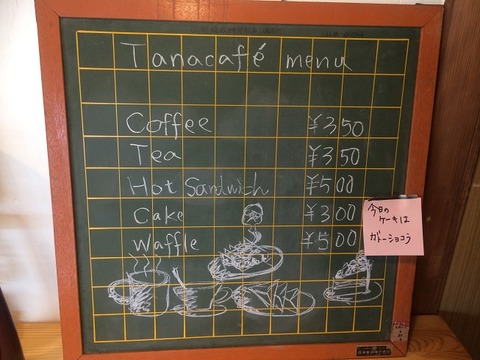 Tanacafé menu
Coffee ¥350
Tea ¥350
Hot Sandwich ¥500
Cake ¥300
Waffle ¥500
今日の
ケーキは
ガトーショコラ